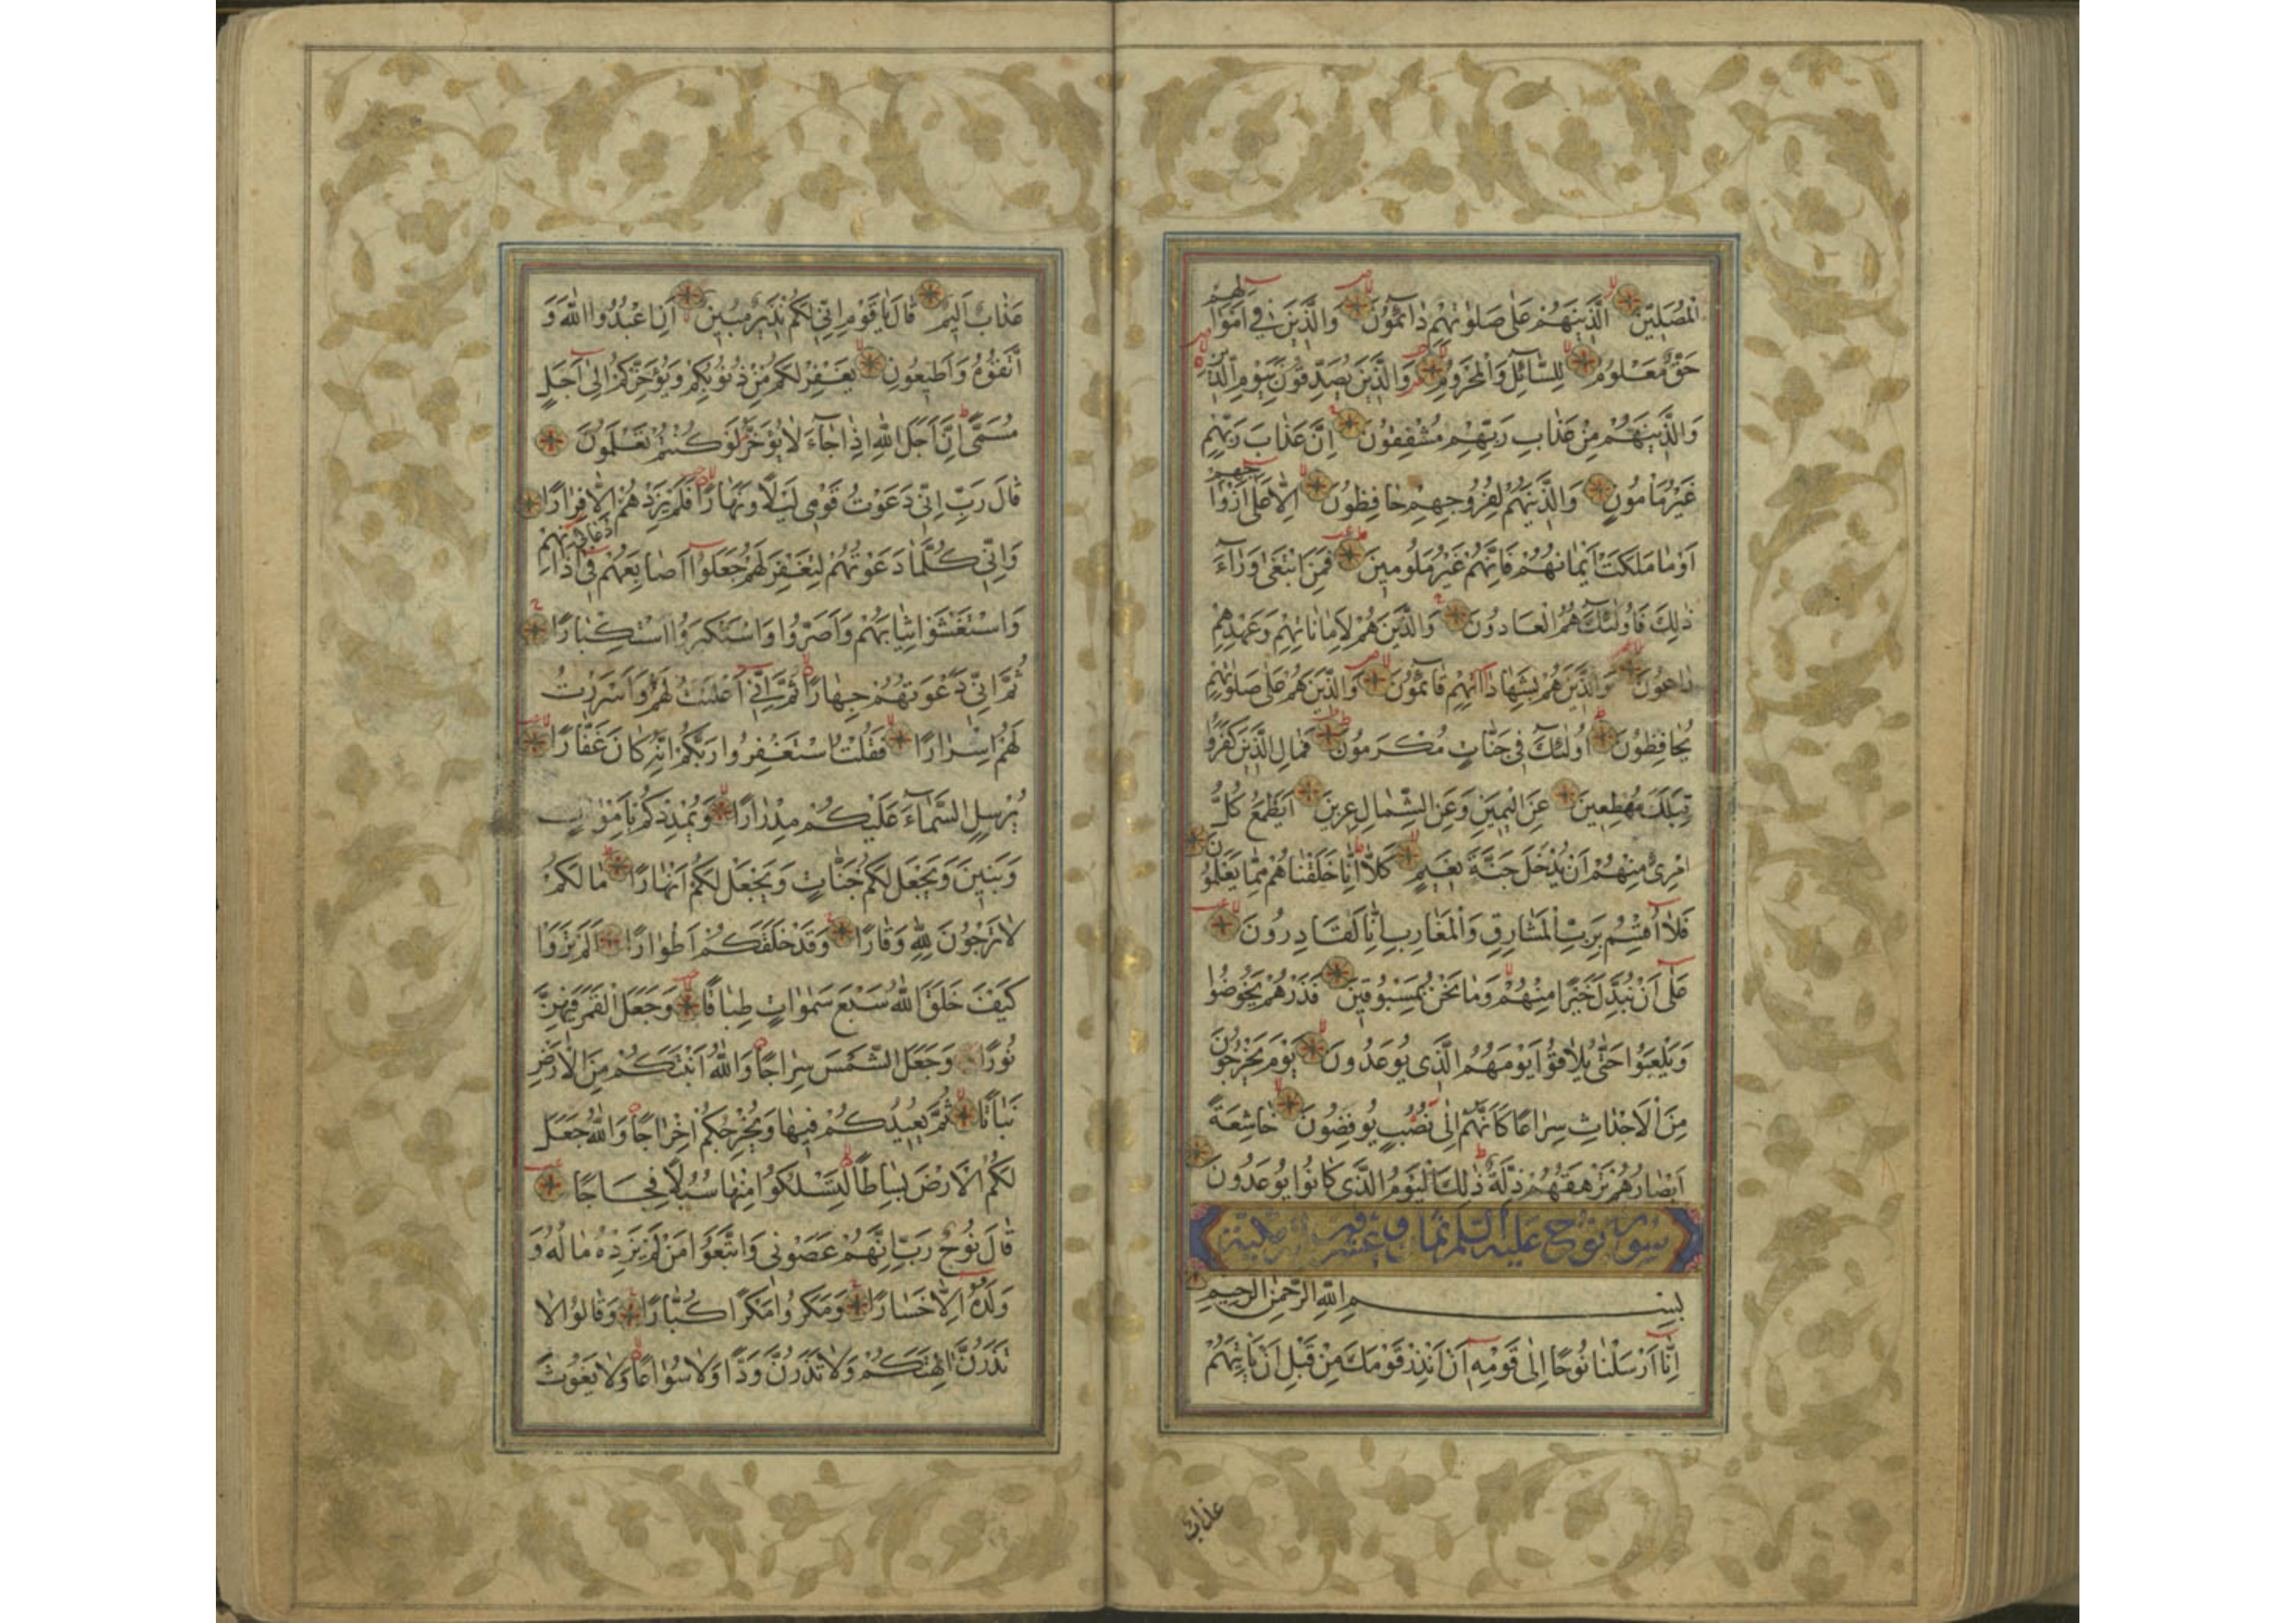 الْمُصَلِّينَ الَّذِينَ هُمْ عَلٰى صَلٰوتِهِمْ دٰائِمُونَ وَالَّذِينَ فِي اَمْوٰالِهِمْ
حَقٌّ مَعْلُومٌ لِلسَّائِلِ وَالْمَحْرُومِ وَالَّذِينَ يُصَدِّقُونَ بِيَوْمِ الدِّينِ
وَالَّذِينَ هُمْ مِنْ عَذٰابِ رَبِّهِمْ مُشْفِقُونَ اِنَّ عَذٰابَ رَبِّهِمْ
غَيْرُ مَأْمُونٍ وَالَّذِينَ هُمْ لِفُرُوجِهِمْ حٰافِظُونَ اِلّٰا عَلٰى اَزْوٰاجِهِمْ
اَوْ مٰا مَلَكَتْ اَيْمٰانُهُمْ فَاِنَّهُمْ غَيْرُ مَلُومِينَ فَمَنِ ابْتَغٰى وَرٰاءَ
ذٰلِكَ فَاُولٰئِكَ هُمُ الْعَادُونَ وَالَّذِينَ هُمْ لِاَمٰانٰاتِهِمْ وَعَهْدِهِمْ
رٰاعُونَ وَالَّذِينَ هُمْ بِشَهٰادٰاتِهِمْ قٰائِمُونَ وَالَّذِينَ هُمْ عَلٰى صَلٰوتِهِمْ
يُحٰافِظُونَ اُولٰئِكَ فِي جَنّٰاتٍ مُكْرَمُونَ فَمٰالِ الَّذِينَ كَفَرُوا
قِبَلَكَ مُهْطِعِينَ عَنِ الْيَمِينِ وَعَنِ الشِّمٰالِ عِزِينَ اَيَطْمَعُ كُلُّ
امْرِئٍ مِنْهُمْ اَنْ يُدْخَلَ جَنَّةَ نَعِيمٍ كَلّٰا اِنّٰا خَلَقْنٰاهُمْ مِمّٰا يَعْلَمُونَ
فَلٰا اُقْسِمُ بِرَبِّ الْمَشٰارِقِ وَالْمَغٰارِبِ اِنّٰا لَقٰادِرُونَ
عَلٰى اَنْ نُبَدِّلَ خَيْرًا مِنْهُمْ وَمٰا نَحْنُ بِمَسْبُوقِينَ فَذَرْهُمْ يَخُوضُوا
وَيَلْعَبُوا حَتّٰى يُلٰاقُوا يَوْمَهُمُ الَّذِي يُوعَدُونَ يَوْمَ يَخْرُجُونَ
مِنَ الْاَجْدٰاثِ سِرٰاعًا كَاَنَّهُمْ اِلٰى نُصُبٍ يُوفِضُونَ خٰاشِعَةً
اَبْصٰارُهُمْ تَرْهَقُهُمْ ذِلَّةٌ ذٰلِكَ الْيَوْمُ الَّذِي كٰانُوا يُوعَدُونَ
سورة نوح عليه السلم ثمان و عشرون اية مكية
بِسْمِ اللّٰهِ الرَّحْمٰنِ الرَّحِيمِ
اِنّٰا اَرْسَلْنٰا نُوحًا اِلٰى قَوْمِهِ اَنْ اَنْذِرْ قَوْمَكَ مِنْ قَبْلِ اَنْ يَأْتِيَهُمْ
عذاب
عَذٰابٌ اَلِيمٌ قٰالَ يٰا قَوْمِ اِنِّي لَكُمْ نَذِيرٌ مُبِينٌ اَنِ اعْبُدُوا اللّٰهَ وَ
اتَّقُوهُ وَاَطِيعُونِ يَغْفِرْ لَكُمْ مِنْ ذُنُوبِكُمْ وَيُؤَخِّرْكُمْ اِلٰى اَجَلٍ
مُسَمًّى اِنَّ اَجَلَ اللّٰهِ اِذٰا جٰاءَ لٰا يُؤَخَّرُ لَوْ كُنْتُمْ تَعْلَمُونَ
قٰالَ رَبِّ اِنِّي دَعَوْتُ قَوْمِي لَيْلًا وَنَهٰارًا فَلَمْ يَزِدْهُمْ دُعٰائِي اِلّٰا فِرٰارًا
وَاِنِّي كُلَّمٰا دَعَوْتُهُمْ لِتَغْفِرَ لَهُمْ جَعَلُوا اَصٰابِعَهُمْ فِي اٰذٰانِهِمْ
وَاسْتَغْشَوْا ثِيٰابَهُمْ وَاَصَرُّوا وَاسْتَكْبَرُوا اسْتِكْبٰارًا
ثُمَّ اِنِّي دَعَوْتُهُمْ جِهٰارًا ثُمَّ اِنِّي اَعْلَنْتُ لَهُمْ وَاَسْرَرْتُ
لَهُمْ اِسْرٰارًا فَقُلْتُ اسْتَغْفِرُوا رَبَّكُمْ اِنَّهُ كٰانَ غَفّٰارًا
يُرْسِلِ السَّمٰاءَ عَلَيْكُمْ مِدْرٰارًا وَيُمْدِدْكُمْ بِاَمْوٰالٍ
وَبَنِينَ وَيَجْعَلْ لَكُمْ جَنّٰاتٍ وَيَجْعَلْ لَكُمْ اَنْهٰارًا مٰا لَكُمْ
لٰا تَرْجُونَ لِلّٰهِ وَقٰارًا وَقَدْ خَلَقَكُمْ اَطْوٰارًا اَلَمْ تَرَوْا
كَيْفَ خَلَقَ اللّٰهُ سَبْعَ سَمٰوٰاتٍ طِبٰاقًا وَجَعَلَ الْقَمَرَ فِيهِنَّ
نُورًا وَجَعَلَ الشَّمْسَ سِرٰاجًا وَاللّٰهُ اَنْبَتَكُمْ مِنَ الْاَرْضِ
نَبٰاتًا ثُمَّ يُعِيدُكُمْ فِيهٰا وَيُخْرِجُكُمْ اِخْرٰاجًا وَاللّٰهُ جَعَلَ
لَكُمُ الْاَرْضَ بِسٰاطًا لِتَسْلُكُوا مِنْهٰا سُبُلًا فِجٰاجًا
قٰالَ نُوحٌ رَبِّ اِنَّهُمْ عَصَوْنِي وَاتَّبَعُوا مَنْ لَمْ يَزِدْهُ مٰالُهُ وَ
وَلَدُهُ اِلّٰا خَسٰارًا وَمَكَرُوا مَكْرًا كُبّٰارًا وَقٰالُوا لٰا
تَذَرُنَّ اٰلِهَتَكُمْ وَلٰا تَذَرُنَّ وَدًّا وَلٰا سُوٰاعًا وَلٰا يَغُوثَ